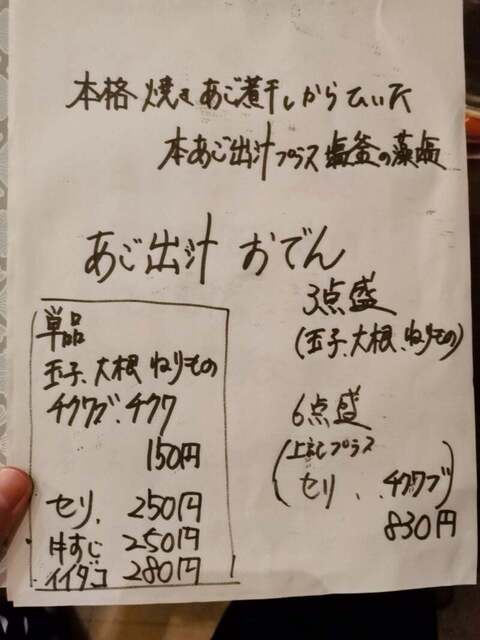 本格焼きあご煮干しからひいた
本あご出汁プラス塩釜の藻塩
あご出汁 おでん
単品
玉子、大根、ねりもの
チクワブ、チクワ
150円
セリ、250円
牛すじ 250円
イイダコ 280円
3点盛
(玉子、大根、ねりもの)
6点盛
(上記プラス
セリ、、チクワブ)
830円